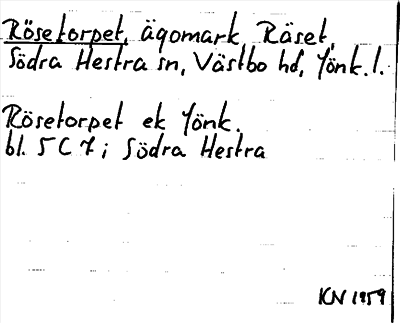 Rösetorpet, ägomark Räset,
Södra Hestra sn, Västbo hd, Jönk.l.
Rösetorpet ek Jönk.
bl. 5 C 7 i Södra Hestra
KN 1959